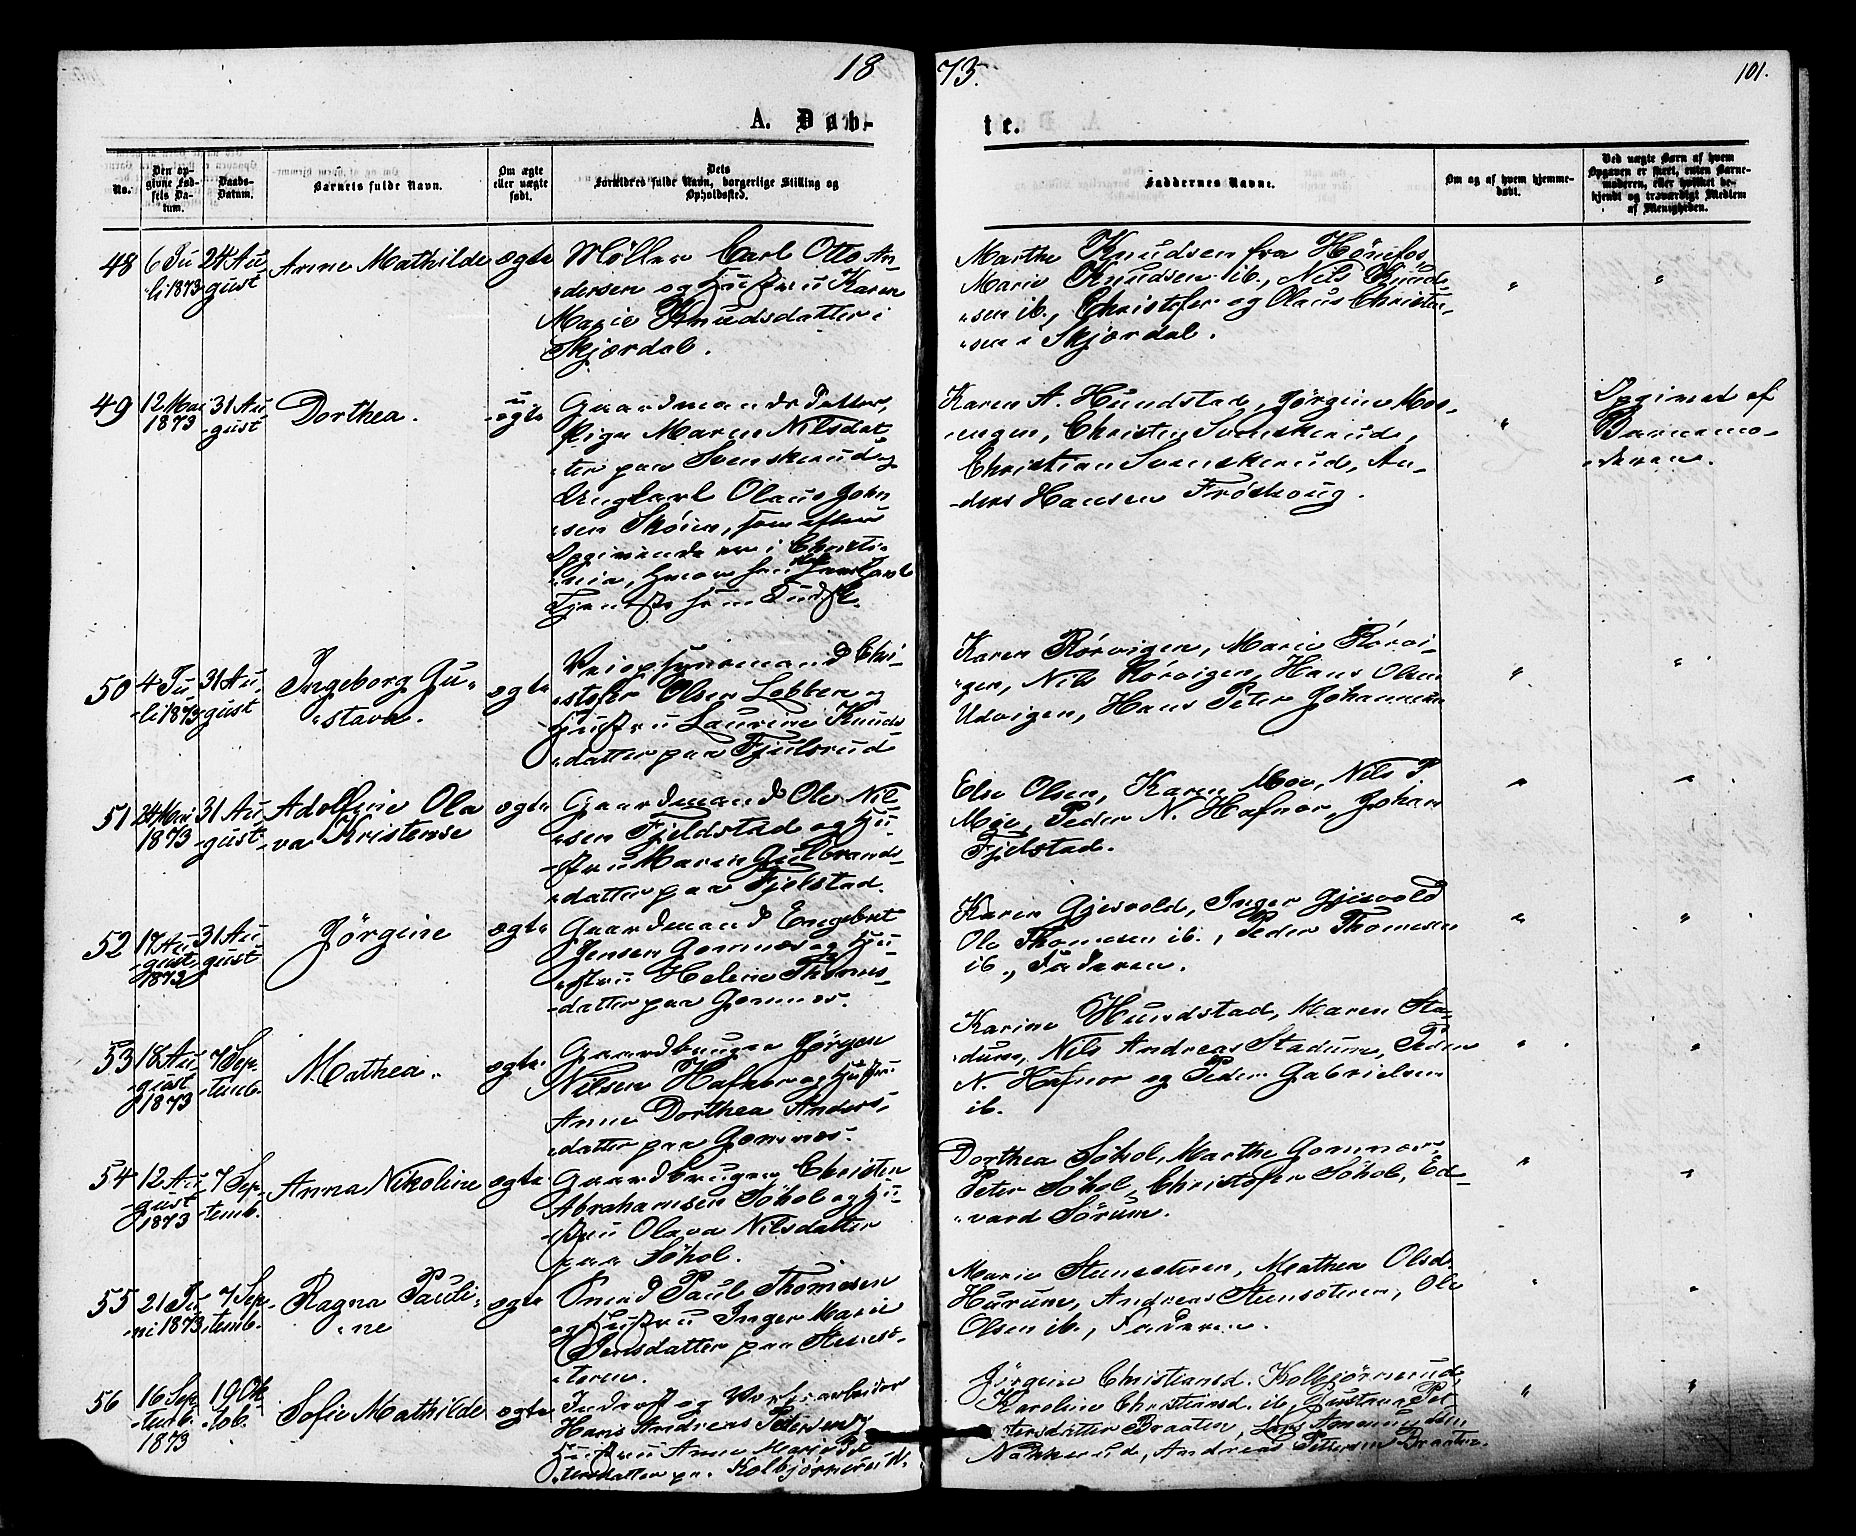 18
73.
101.
A. Døb-
te.
No.
Den op-
givne Fød-
sels Da-
tum.
Daabs-
Datum.
Barnets fulde Navn.
Om ægte
eller uægte
født.
Dets
Forældres fulde Navn, borgerlige Stilling og
Opholdssted.
Faddernes Navne.
Om og af hvem hjemme-
døbt.
Ved uægte Børn af hvem
Opgaven er skeet, enten Barne-
moderen, eller hvilket be-
kjendt og troværdigt Medlem
af Menigheden.
48
6 Ju
li 1873
24 Au
gust
Anne Mathilde
ægte
Møller Carl Otto An-
dersen og Hustru Karen
Marie Knudsdatter i
Skjærdal.
Marthe Knudsen fra Hønefos
Marie Knudsen ib., Nils Knud-
sen ib., Christofer og Olaus Christen-
sen i Skjærdal.
"
"
49
12 Mai
1873
31 Au-
gust
Dorthea.
u-
ægte
Gaardmandsdatter,
Pige Maren Nilsdat-
ter paa Svenskerud og
Ungkarl Olaus John-
sen Skøien, som efter
Opgivende er i Christi-
ania, hvor han
Tjeneste som
Karen A. Hundstad, Jørgine Mos-
engen, Christen Svenskerud,
Christian Svenskerud, An-
ders Hansen Frøshoug.
"
Opgivet af
Barnemo-
deren.
50
4 Ju-
li 1873
31 Au-
gust
Ingeborg Gu-
stava.
ægte
Veiopsynsmand Chri-
stofer Olsen Løbben og
Hustru Laurine Knuds
datter paa Fjulsrud
Karen Rørvigen, Marie Rørvi-
gen, Nils Rørvigen, Hans Olsen
Udvigen, Hans Peter Johannesen
"
"
51
24 Mai
1873
31 Au-
gust
Adolfine Ola
va Kristense
ægte
Gaardmand Ole Nil-
sen Fjeldstad og Hu-
stru Maren Gulbrands-
datter paa Fjelstad.
Else Olsen, Karen Moe, Nils P.
Moe, Peder N. Hafnor, Johan
Fjelstad.
"
"
52
17 Au-
gust
1873
31 Au-
gust
Jørgine
ægte
Gaardmand Engebret
Jensen Gomnæs og Hu
stru Helene Thomes-
datter paa Gomnæs.
Karen Gjesvold, Inger Gjesvold
Ole Thomesen ib., Peder Thomesen
ib., Faderen.
"
"
53
18 Au-
gust
1873
7 Sep-
temb.
Mathea.
ægte
Gaardbruger Jørgen
Nilsen Hafnor og Hustru
Anne Dorthea Anders-
datter paa Gomnæs.
Karine Hundstad, Maren Sta-
dum, Nils Andreas Stadum, Peder
N. Hafnor og Peder Gabrielsen
ib.
"
"
54
12 Au
gust
1873
7 Sep-
temb.
Anna Nikoline
ægte
Gaardbruger Christen
Abrahamsen Søhol og Hu-
stru Olava Nilsdatter
paa Søhol.
Dorthea Søhol, Marthe Gomnæs,
Peter Søhol, Christofer Søhol, Ed-
vard Sørum.
"
"
55
21 Ju-
ni 1873
7 Sep-
temb.
Ragna Pauli-
ne
ægte
Smed Paul Thomesen
og Hustru Inger Marie
Iversdatter paa Stensæ-
teren.
Marie Stensæteren, Mathea Olsd.
Hurum, Andreas Stensæteren, Ole
Olsen ib., Faderen.
"
"
56
16 Sep
temb.
1873
19 Ok
tob.
Sofie Mathilde
ægte
Inderst og Værksarbeider
Hans Andreas Pedersen og
Hustru Anne Marie Pe
tersdatter pa. Kolbjørnerud.
Jørgine Christiansd. Kolbjørnerud,
Karoline Christiansd. ib., Gustava Pet
tersdatter Braaten, Lars Amundsen
Nakkerud, Andreas Pettersen Braaten.
"
"